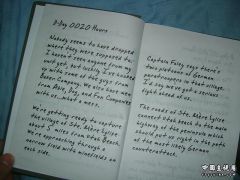 D-Day 0020 Hours
Nobody seems to have dropped
where they were supposed to.
I haven't seen anyone from my
unit yet, but luckily I've hooked
up with some of the guys from
Baker Company. We also have men
from Able, Dog, and Fox Companies
with us...what a mess.
We're getting ready to capture
the village of Ste. Mère Église
about 5 miles from Utah Beach.
We are approaching through a
narrow field with minefields on
each side.
Captain Foley says there's
two platoons of German
paratroopers in that village.
I'd say we've got a serious
fight ahead of us.
The roads at Ste. Mère Église
connect Utah Beach to the main
highway of the peninsula which
should put us right in the path
of the most likely German
counterattack.